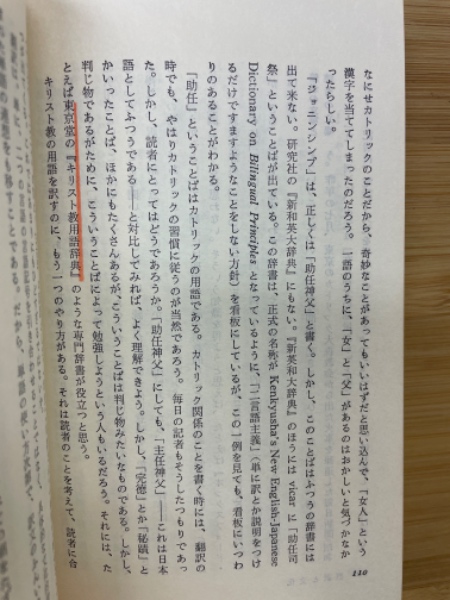 なにせカトリックのことだから、奇妙なことがあってもいいはずだと思い込んで、「女人」という
漢字を当ててしまったのだろう。一語のうちに、「女」と「父」があるのはおかしいと気づかなか
ったらしい。
「ジョニンシンプ」は、正しくは「助任神父」と書く。しかし、このことばはふつうの辞書には
出て来ない。研究社の『新和英大辞典』にもない。『新英和大辞典』のほうには vicar に「助任司
祭」ということばが出ている。この辞書は、正式の名称が Kenkyusha's New English-Japanese
Dictionary on Bilingual Principles となっているように、「二言語主義」（単に訳とか説明をつけ
るだけですますようなことをしない方針）を看板にしているが、この一例を見ても、看板にいつわ
りのあることがわかる。
「助任」ということばはカトリックの用語である。カトリック関係のことを書く時には、翻訳の
時でも、やはりカトリックの習慣に従うのが当然であろう。毎日の記者もそうしたつもりであっ
た。しかし、読者にとってはどうであろうか。「助任神父」にしても、「主任神父」——これは日本
語としてふつうである——と対比してみれば、よく理解できよう。しかし、「完徳」とか「秘蹟」と
かいったことば、ほかにもたくさんあるが、こういうことばは判じ物みたいなものである。しかし、
判じ物であるがために、こういうことばによって勉強しようという人もいるだろう。それには、た
とえば東京堂の『キリスト教用語辞典』のような専門辞書が役立つと思う。
キリスト教の用語を訳すのに、もう一つのやり方がある。それは読者のことを考えて、読者に合
110